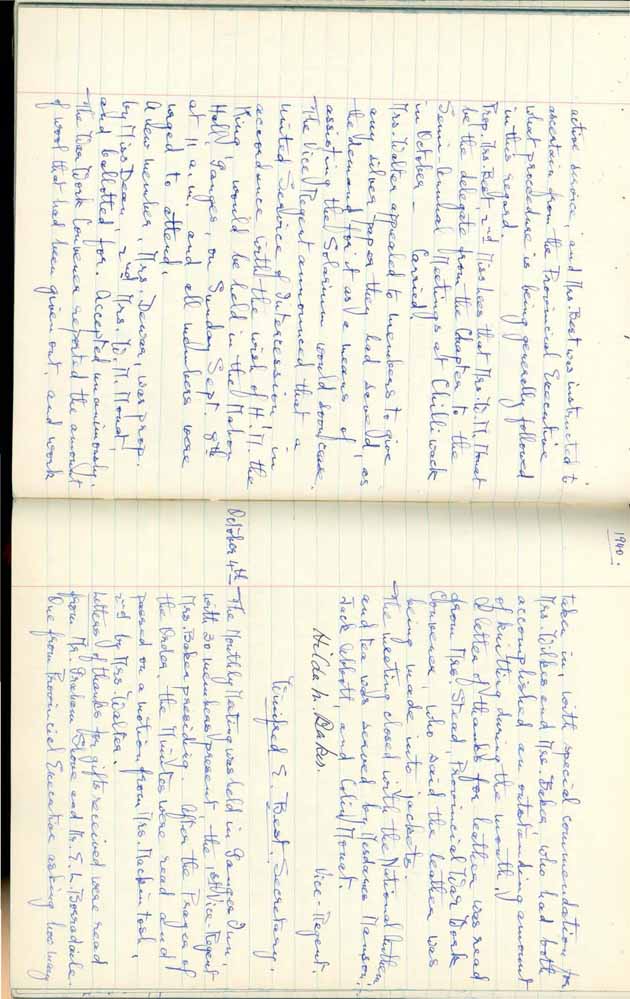 active service, and Mrs. Best was instructed to
ascertain from the Provincial Executive
what procedure is being generally followed
in this regard.
Prop. Mrs. Best 2nd Miss Lees that Mrs. W. M. Mouat
be the delegate from the Chapter to the
Semi-Annual Meetings at Chilliwack
in October — Carried.
Mrs. Walter appealed to members to give
any silver paper they had saved, as
the demand for it as a means of
assisting the Solarium would soon cease.
The Vice Regent announced that a
United Service of Intercession in
accordance with the wish of H.M. the
King, would be held in the Mahon
Hall, Ganges, on Sunday Sept. 8th
at 11 a.m. and all members were
urged to attend.
A new member, Mrs. Dewar, was prop.
by Miss Dean, 2nd Mrs. W. M. Mouat,
and ballotted for. Accepted unanimously.
The War Work Convener reported the amount
of wool that had been given out, and work
1940.
taken in, with special commendation for
Mrs. Wilkes and Mrs. Baker who had both
accomplished an outstanding amount
of knitting during the month.
A letter of thanks for leather was read
from Mrs. Steed, Provincial War Work
Convener, who said the leather was
being made into jackets.
The meeting closed with the National Anthem
and tea was served by Mesdames Manson,
Jack Abbott, and Colin Mouat.
Hilda M. Baker. Vice-Regent.
Winifred E. Best, Secretary.
October 4th — The Monthly Meeting was held in Ganges Inn,
with 30 members present, the 1st Vice-Regent
Mrs. Baker presiding. After the Prayer of
the Order, the Minutes were read and
passed on a motion from Mrs. Mackintosh,
2nd by Mrs. Walter.
Letters of thanks for gifts received were read
from Mr. Graham Shove and Mr. E. L. Borradaile.
One from Provincial Executive asking how many